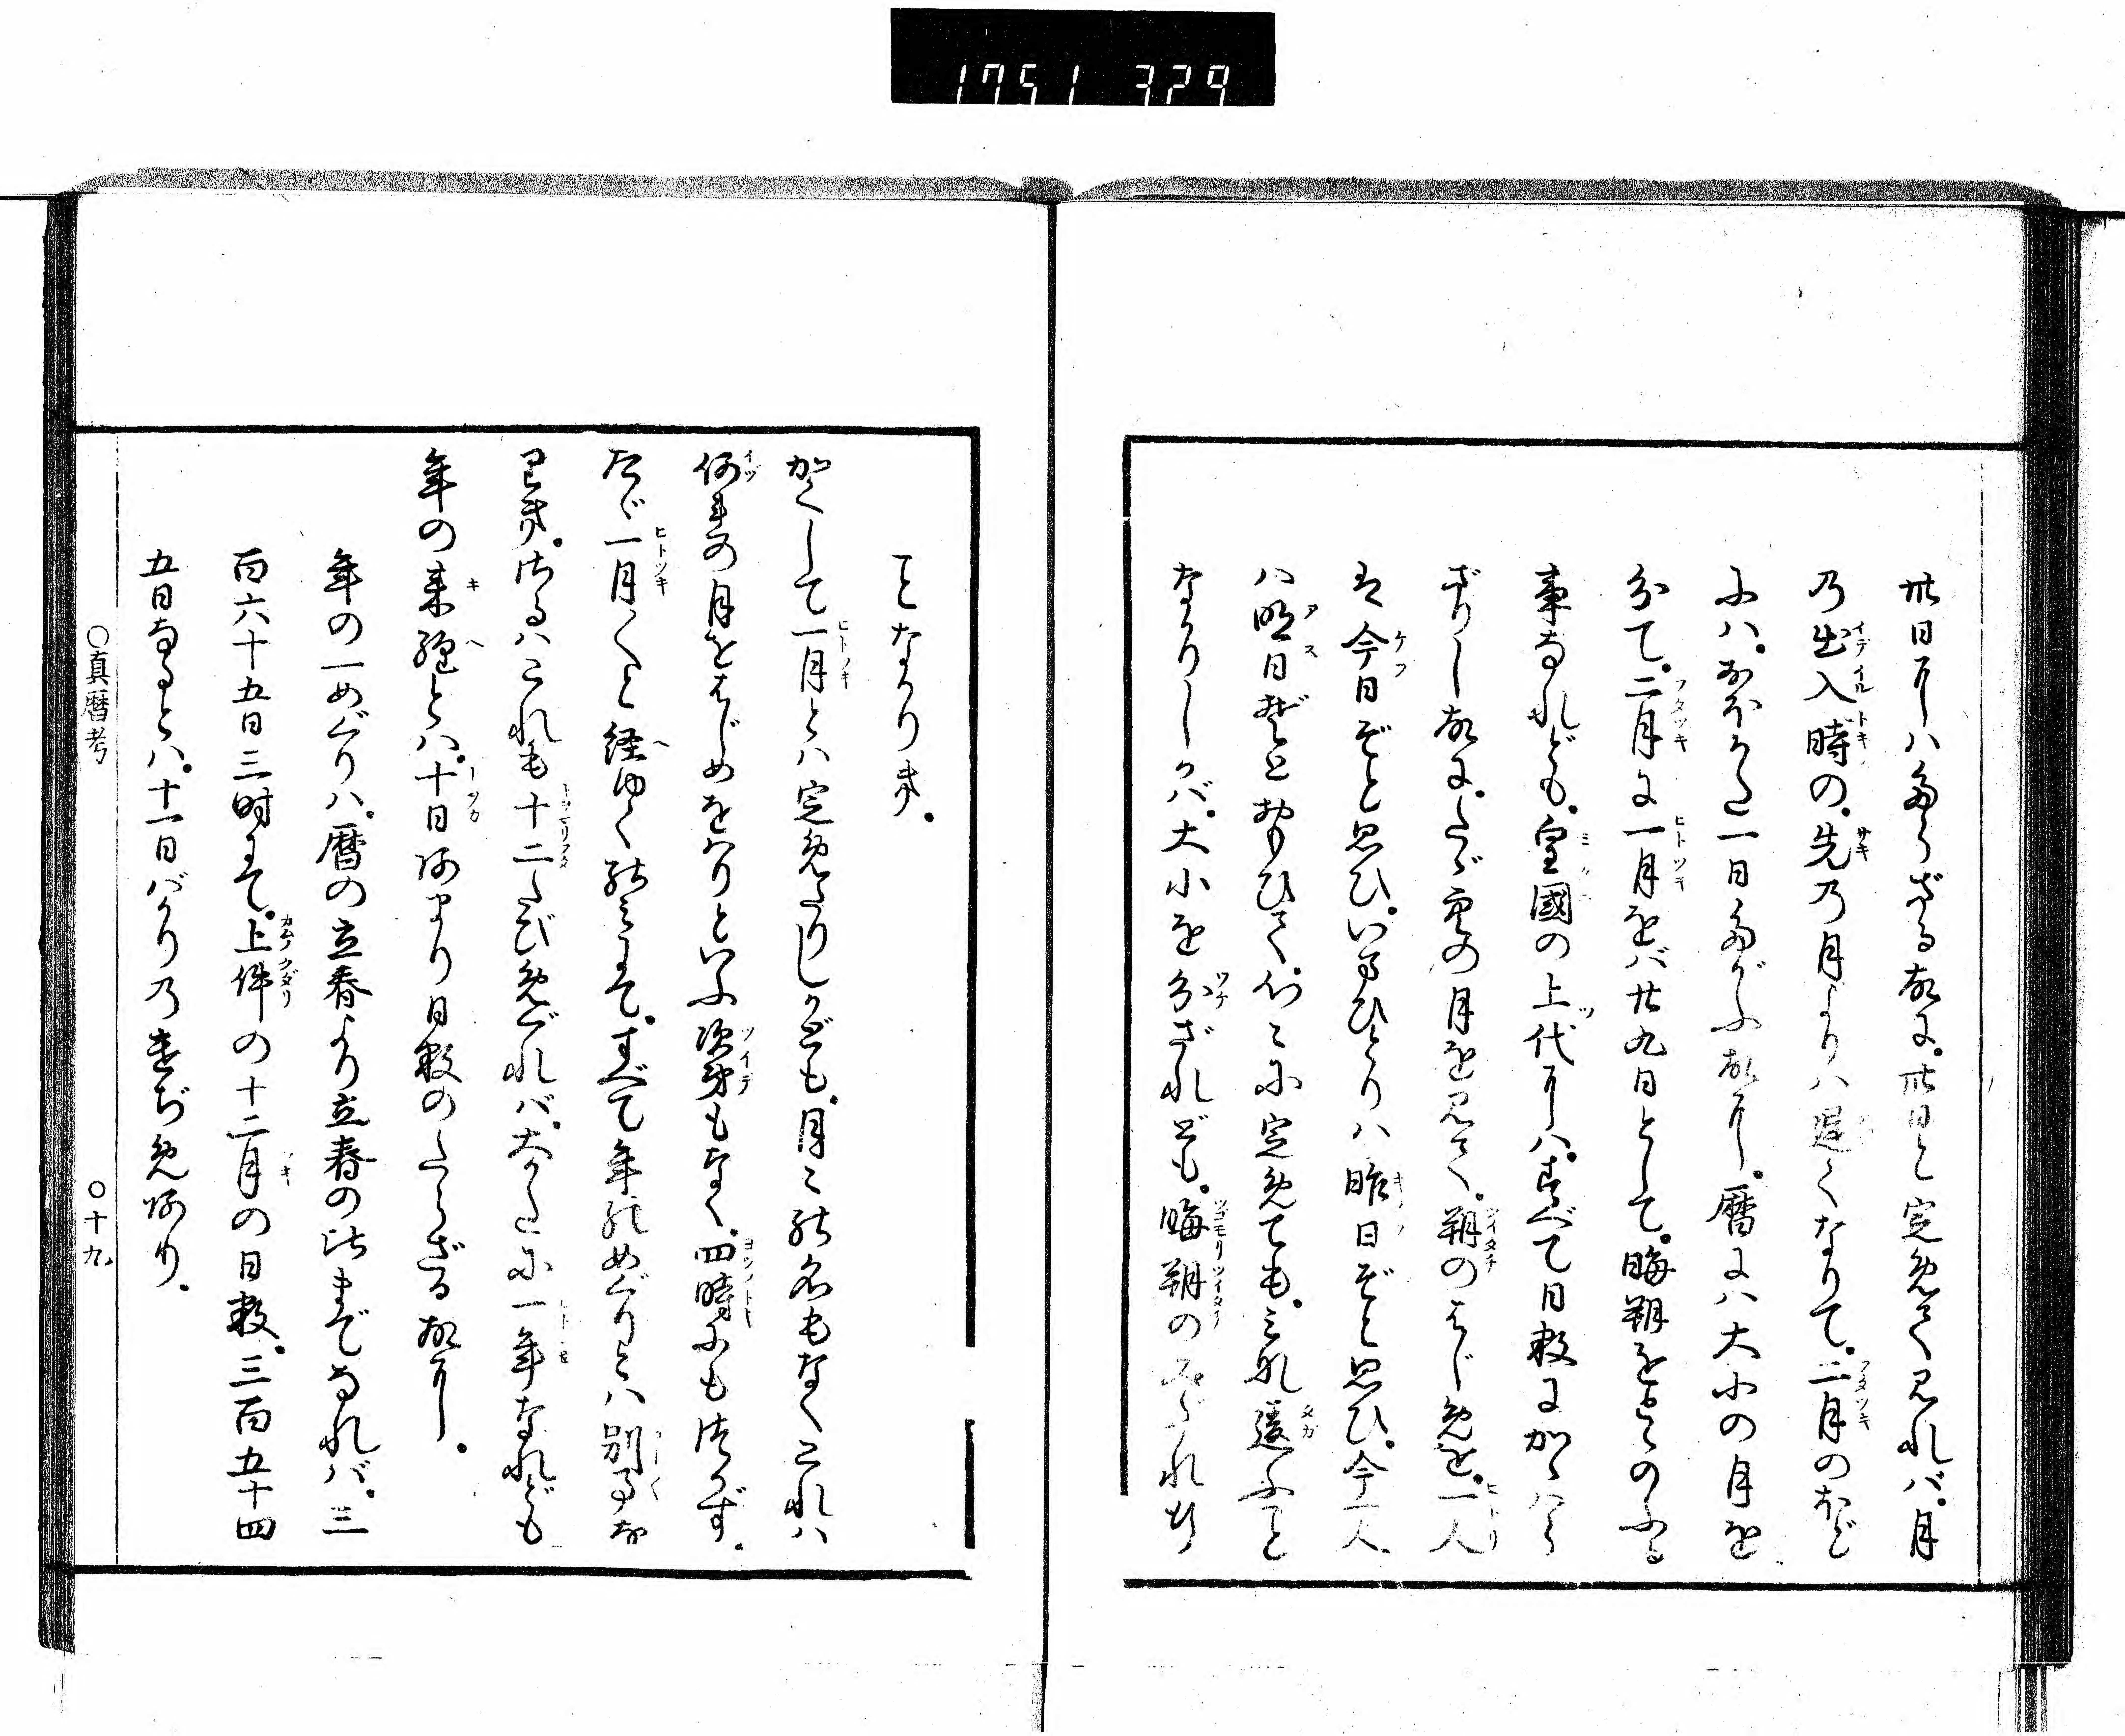 1751 329
卅日にハたらざる故に。卅日と定めて見れバ。月
の出入時の。先の月よりハ遅くなりて。二月のほど
にハ。おほかた一日たがふ故に。暦にハ大小の月を
分て。二月に一月をバ廿九日として。晦朔をとゝのふる
事なれども。皇國の上代にハ。すべて日数にかゝハら
ざりし故に。たゞ空の月を見て。朔のはじめを。一人
は今日ぞと思ひ。いまひとりハ昨日ぞと思ひ。今一人
ハ明日ぞとおもひて。心々に定めても。みな違ふこと
なかりしかバ。大小を分ざれども。晦朔のみだれ行
ことなかりき。
かくして一月とハ定めたりしかども。月々の名もなくこれハ
何れの月をはじめをハりといふ次第もなく。四時にも つかず。
たゞ一月〳〵と経ゆくのミにて。すべて年のめぐりとハ別事な
りき。さるハこれも十二たび めぐれバ。大かたに一年なれども
年の来経とハ。十日あまり日数のたらざる故に。
年の一めぐりハ。暦の立春より立春の比までなれバ。三
百六十五日三時にて。上件の十二月の日数。三百五十四
五日なるとハ。十一日バかりのけぢめあり。
○真暦考
○十九